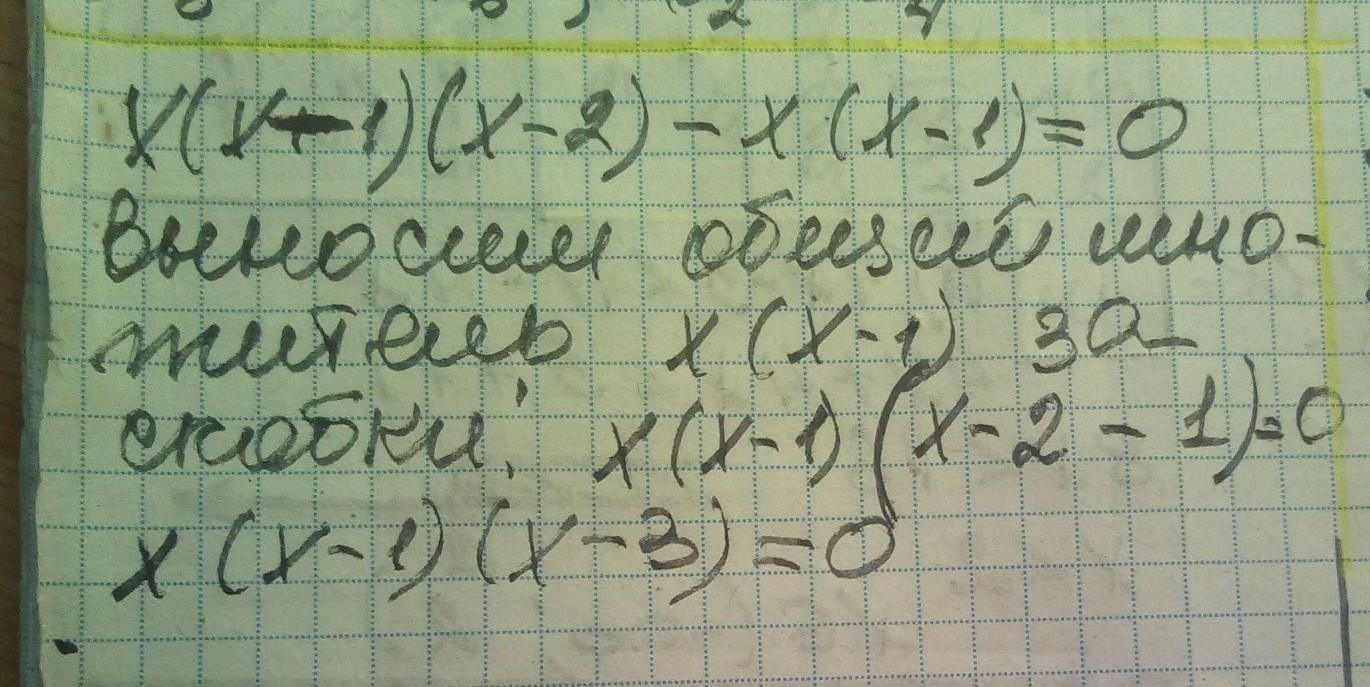 x(x-1)(x-2)-x(x-1)=0
Выносим общий мно-
житель x(x-1) за
скобки: x(x-1)(x-2-1)=0
x(x-1)(x-3)=0